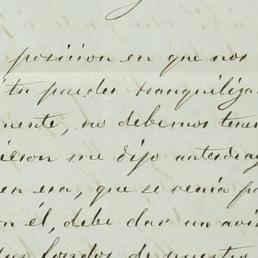 posicion en que nos
tu puedes tranquiliza
mente, no debemos tener
me dijo antedia
en esa, que se venia pa
on él, debe dar un avi
fondos de nuestro